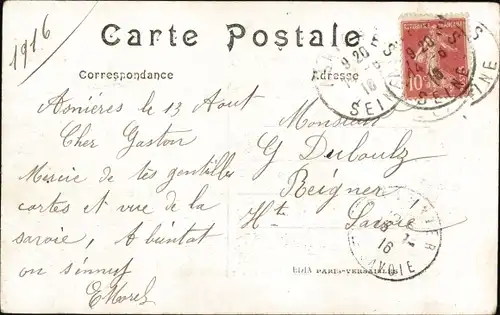 1916
Carte Postale
Correspondance
Adresse
Asnières le 13 Août
Cher Gaston
Mercie de tes gentilles
cartes et vue de la
savoie, A bientôt
on s'ennuf
EMorel
Monsieur
G Duboulz
Reignier
Hte Savoie
9 20
SEINE
10
9 20
SEINE
16
SAVOIE
PARIS-VERSAILLES